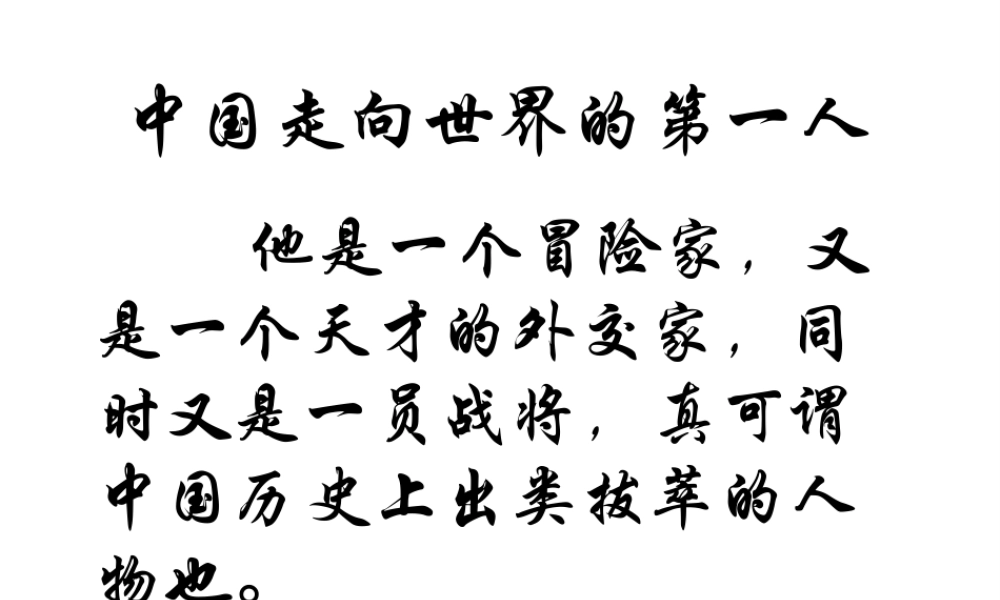 中国走向世界的第一人
他是一个冒险家，又
是一个天才的外交家，同
时又是一员战将，真可谓
中国历史上出类拔萃的人
物也。